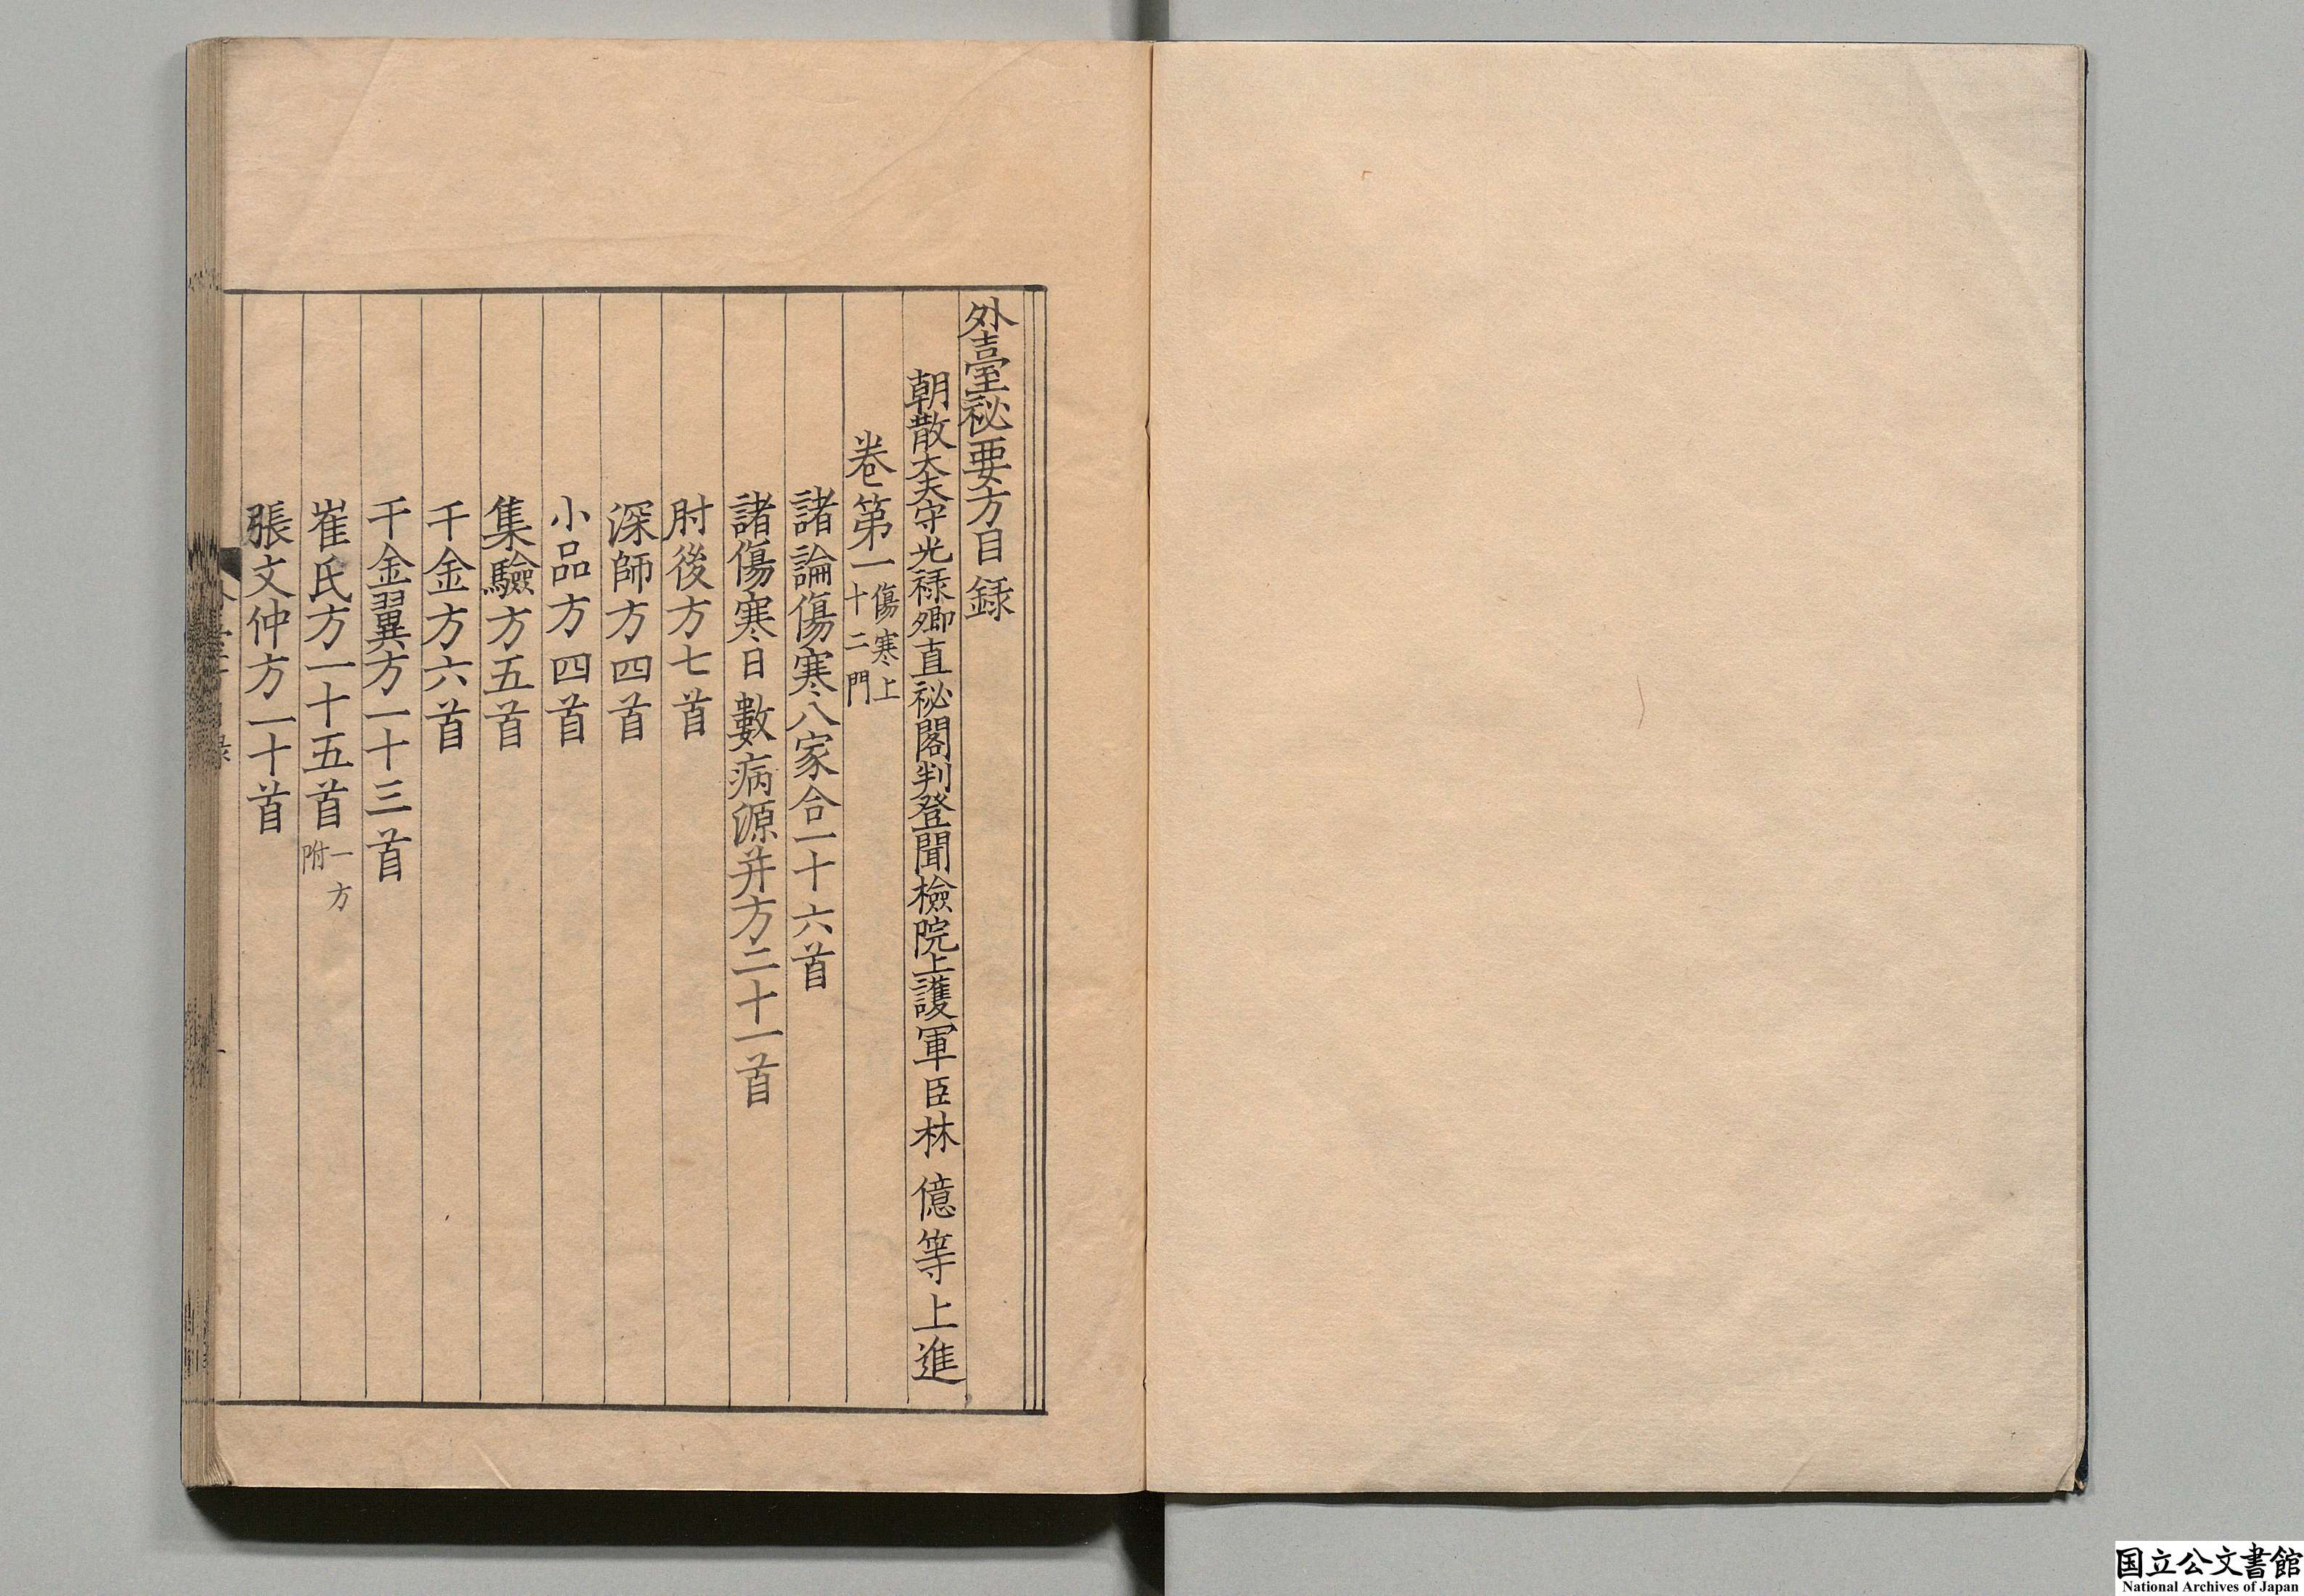 外臺祕要方目録
朝散大夫守光禄卿直祕閣判登聞檢院上護軍臣林億等上進
卷第一傷寒上十二門
諸論傷寒八家合一十六首
諸傷寒日數病源并方二十一首
肘後方七首
深師方四首
小品方四首
集驗方五首
千金方六首
千金翼方一十三首
崔氏方一十五首一方附
張文仲方一十首
国立公文書館
National Archives of Japan